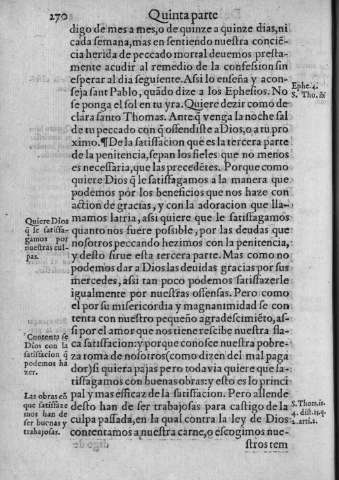 270 Quinta parte
digo de mes a mes, o de quinze a quinze dias, ni
cada semana, mas en sentiendo nuestra conciē-
cia herida de peccado mortal deuemos presta-
mente acudir al remedio de la confession sin
esperar al dia seguiente. Assi lo enseña y acon-
seja sant Pablo, quādo dize a los Ephesios. No
se ponga el sol en tu yra. Quiere dezir como de
clara santo Thomas. Ante q̄ venga la noche sal
de tu peccado con q̄ offendiste a Dios, o a tu pro
ximo. ¶ De la satisfacion que es la tercera parte
de la penitencia, sepan los fieles que no menos
es necessaria, que las precedētes. Porque como
quiere Dios q̄ le satisfagamos a la manera que
podemos por los beneficios que nos haze con
action de gracias, y con la adoracion que lla-
mamos latria, assi quiere que le satisfagamos
quanto nos fuere possible, por las deudas que
nosotros peccando hezimos con la penitencia,
y desto sirue esta tercera parte. Mas como no
podemos dar a Dios las deuidas gracias por sus
mercedes, assi tan poco podemos satisfazerle
igualmente por nuestras offensas. Pero como
el por su misericordia y magnanimidad se con
tenta con nuestro pequeño agradescimiēto, as-
si por el amor que nos tiene rescibe nuestra fla-
ca satisfacion: y porque conosce nuestra pobre-
za toma de nosotros (como dizen del mal paga
dor) si quiera pajas pero todavia quiere que sa-
tisfagamos con buenas obras: y esto es lo princi
pal y mas efficaz de la satisfacion. Pero allende
desto han de ser trabajosas para castigo de la
culpa passada, en la qual contra la ley de Dios
contentamos a nuestra carne, o escogimos nue-
stros tem
Ephe. 4.
S. Tho. ibi
Quiere Dios
q̄ le satisfa-
gamos por
nuestras cul-
pas.
Contenta se
Dios con la
satisfacion q̄
podemos ha
zer.
Las obras cō
que satisfaze
mos han de
ser buenas y
trabajosas.